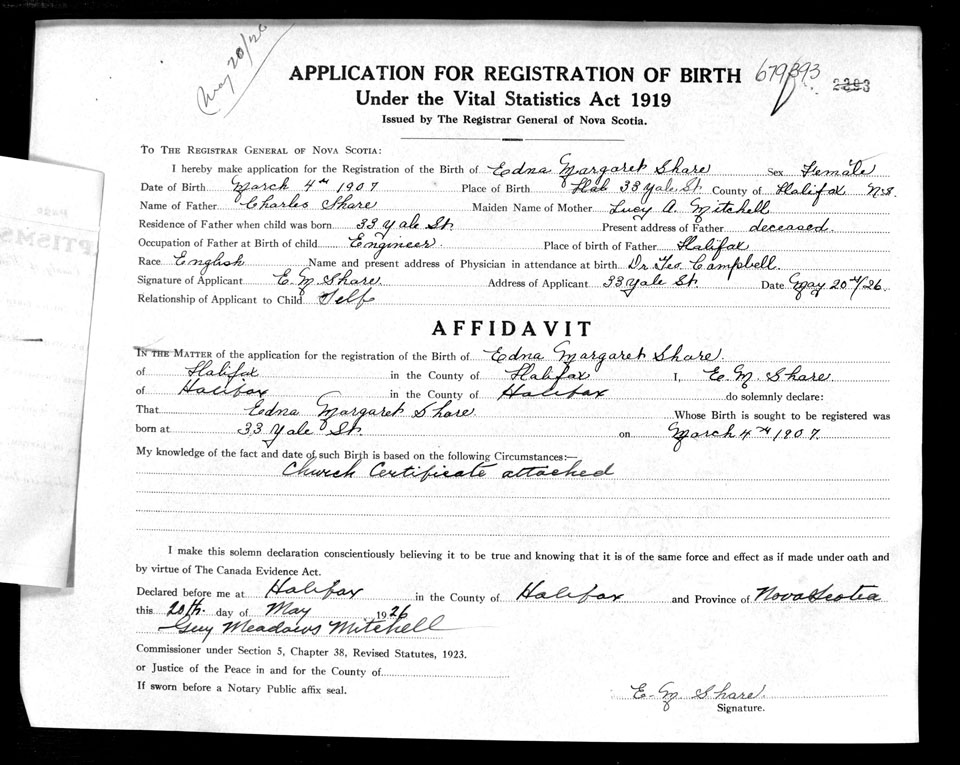 May 20/26
APPLICATION FOR REGISTRATION OF BIRTH 679393 2393
Under the Vital Statistics Act 1919
Issued by The Registrar General of Nova Scotia.
TO THE REGISTRAR GENERAL OF NOVA SCOTIA:
I hereby make application for the Registration of the Birth of Edna Margaret Share Sex Female
Date of Birth March 4th 1907 Place of Birth Hab 33 Yale St. County of Halifax N.S
Name of Father Charles Share Maiden Name of Mother Lucy A. Mitchell
Residence of Father when child was born 33 Yale St. Present address of Father deceased.
Occupation of Father at Birth of child Engineer. Place of birth of Father Halifax
Race English Name and present address of Physician in attendance at birth Dr. Geo. Campbell.
Signature of Applicant E. M. Share. Address of Applicant 33 Yale St. Date May 20th/26.
Relationship of Applicant to Child Self
AFFIDAVIT
IN THE MATTER of the application for the registration of the Birth of Edna Margaret Share.
of Halifax in the County of Halifax I, E. M. Share.
of Halifax in the County of Halifax do solemnly declare:
That Edna Margaret Share. Whose Birth is sought to be registered was
born at 33 Yale St. on March 4th 1907.
My knowledge of the fact and date of such Birth is based on the following Circumstances:—
Church Certificate attached
I make this solemn declaration conscientiously believing it to be true and knowing that it is of the same force and effect as if made under oath and
by virtue of The Canada Evidence Act.
Declared before me at Halifax in the County of Halifax and Province of Nova Scotia
this 20th. day of May 1926
Guy Meadows Mitchell
Commissioner under Section 5, Chapter 38, Revised Statutes, 1923.
or Justice of the Peace in and for the County of
If sworn before a Notary Public affix seal.
E. M. Share.
Signature.